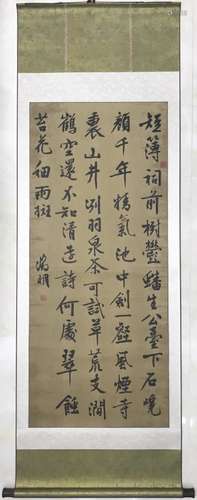 短簿祠前樹鬱蟠生公臺下石
顏千年精氣池中劍一壑風煙寺
裏山井冽羽泉茶可試草荒支澗
鶴空還不知清遠詩何處翠蝕
苔花細雨斑
徵明